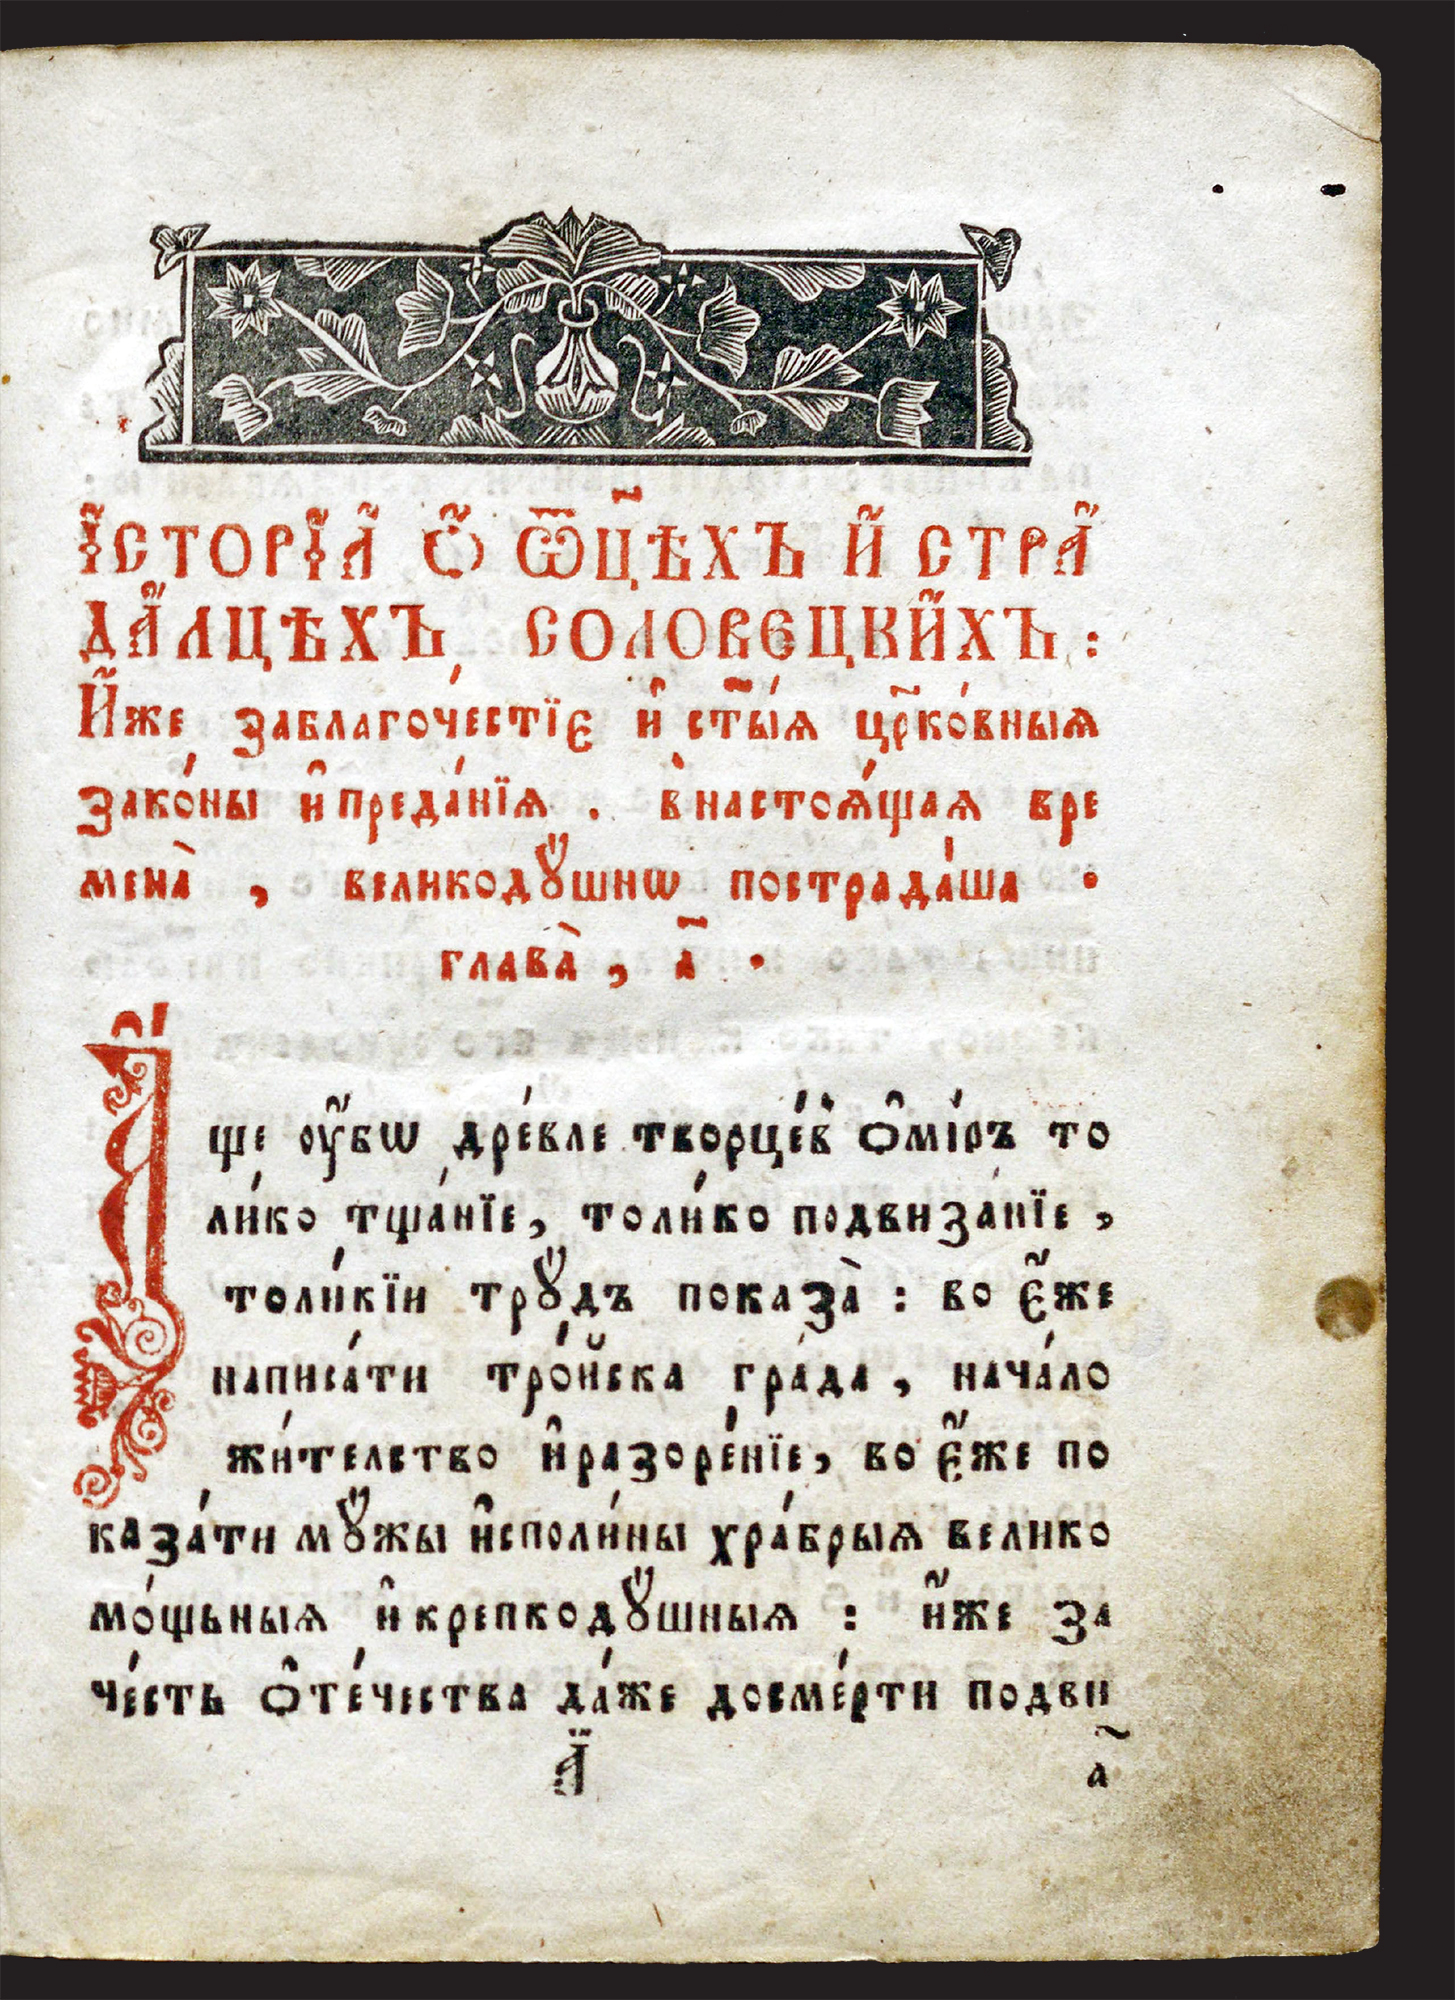 І҆СТОРІ́А Ѽ ѾЦ҃ѢХЪ И҆ СТРА
ДА́ЛЦѢХЪ, СОЛОВЕЦКИ́ХЪ:
И҆́же заблагоче́стїє и҆ ст҃ы́ѧ цр҃ко́вныѧ
зако́ны и҆преда́нїѧ . в̀настоѧ́щаѧ вре
мена̀ , великодꙋ́шнѡ пострада́ша .
глава̀ , а҃ .
А҆́
ще оу҆́бѡ дре́вле творце́в̀ ѻ҆мі́ръ то
ли́ко тща́нїе, толи́ко подвиза́нїе ,
толи́кїи трꙋ́дъ показа̀ : во є҆́же
написа́ти тро́йска гра́да , нача́ло
жи́телство и҆разоре́нїе, во є҆́же по
каза́ти мꙋ́жы и҆споли́ны хра́брыѧ велико
мо́щьныѧ и҆крепкодꙋ́шныѧ : и҆́же за
че́сть ѻ҆те́чества да́же досме́рти подви
А҆́ а҃